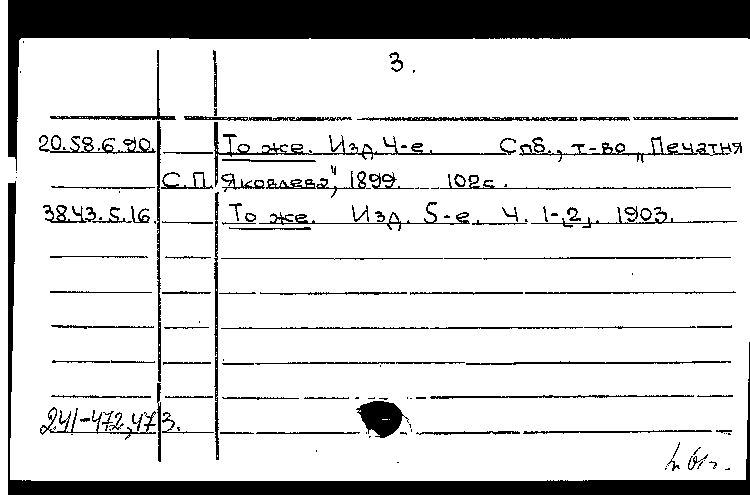 3.
20.58.6.90. То же. Изд. 4-е. Спб., т-во „Печатня
С.П. Яковлева", 1899. 102с.
38.43.5.16. То же. Изд. 5-е. Ч. 1-[2]. 1903.
241-472,473.